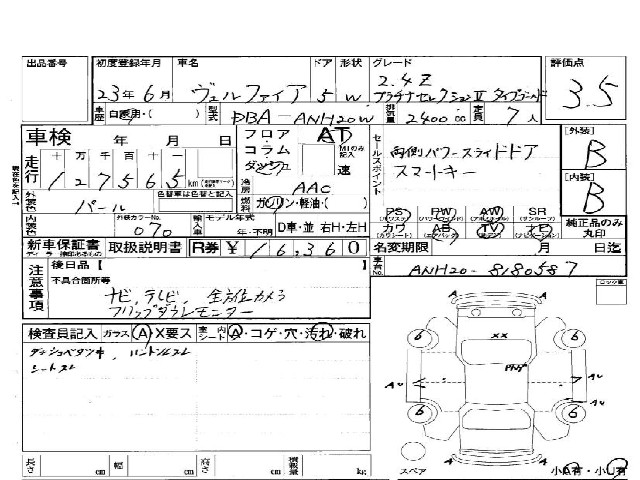 出品番号 初度登録年月 車名 ドア 形状 グレード 評価点
23年6月 ヴェルファイア 5 W 2.4Z
プラチナセレクションⅡ 3.5
車歴 自家用・( ) 型式 DBA-ANH20W 排気量 2400cc 定員 7人
車検 年 月 日 フロア AT
コラム MTのみ記入
ダッシュ 速
走行 十 万 千 百 十
127565 km
冷房 AAC
外装色 パール 色替車は色替と記入 燃料 ガソリン・軽油・( )
内装色 外装カラーNo. 070 輸入車 モデル年式 年・不明 D車・並 右H・左H
セールスポイント 両側パワースライドドア
スマートキー
[外装] B
[内装] B
PS PW AW SR
カワ AB TV ナビ
純正品のみ丸印
新車保証書 取扱説明書 R券 ¥16,360 名変期限 月 日迄
車台No. ANH20-8180587
注意事項 後日品【 】
不具合箇所等
ナビ、テレビ、全方位カメラ
フリップダウンモニター
検査員記入 ガラス A・X要ス 室内シート A・コゲ・穴・汚れ・破れ
ダッシュベタツキ、ハンドルスレ
シートスレ
長さ cm 幅 cm 高さ cm 積載量 kg
A A
6 6
XX
AU AU
6 6
A A
スペア 小A有・小U有